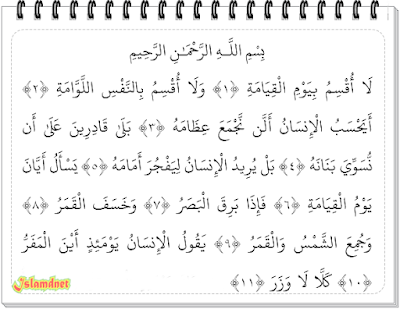 بِسْمِ اللَّهِ الرَّحْمَٰنِ الرَّحِيمِ
لَا أُقْسِمُ بِيَوْمِ الْقِيَامَةِ ﴿١﴾ وَلَا أُقْسِمُ بِالنَّفْسِ اللَّوَّامَةِ ﴿٢﴾
أَيَحْسَبُ الْإِنسَانُ أَلَّن نَّجْمَعَ عِظَامَهُ ﴿٣﴾ بَلَىٰ قَادِرِينَ عَلَىٰ أَن
نُّسَوِّيَ بَنَانَهُ ﴿٤﴾ بَلْ يُرِيدُ الْإِنسَانُ لِيَفْجُرَ أَمَامَهُ ﴿٥﴾ يَسْأَلُ أَيَّانَ
يَوْمُ الْقِيَامَةِ ﴿٦﴾ فَإِذَا بَرِقَ الْبَصَرُ ﴿٧﴾ وَخَسَفَ الْقَمَرُ ﴿٨﴾
وَجُمِعَ الشَّمْسُ وَالْقَمَرُ ﴿٩﴾ يَقُولُ الْإِنسَانُ يَوْمَئِذٍ أَيْنَ الْمَفَرُّ
﴿١٠﴾ كَلَّا لَا وَزَرَ ﴿١١﴾
Islamdnet